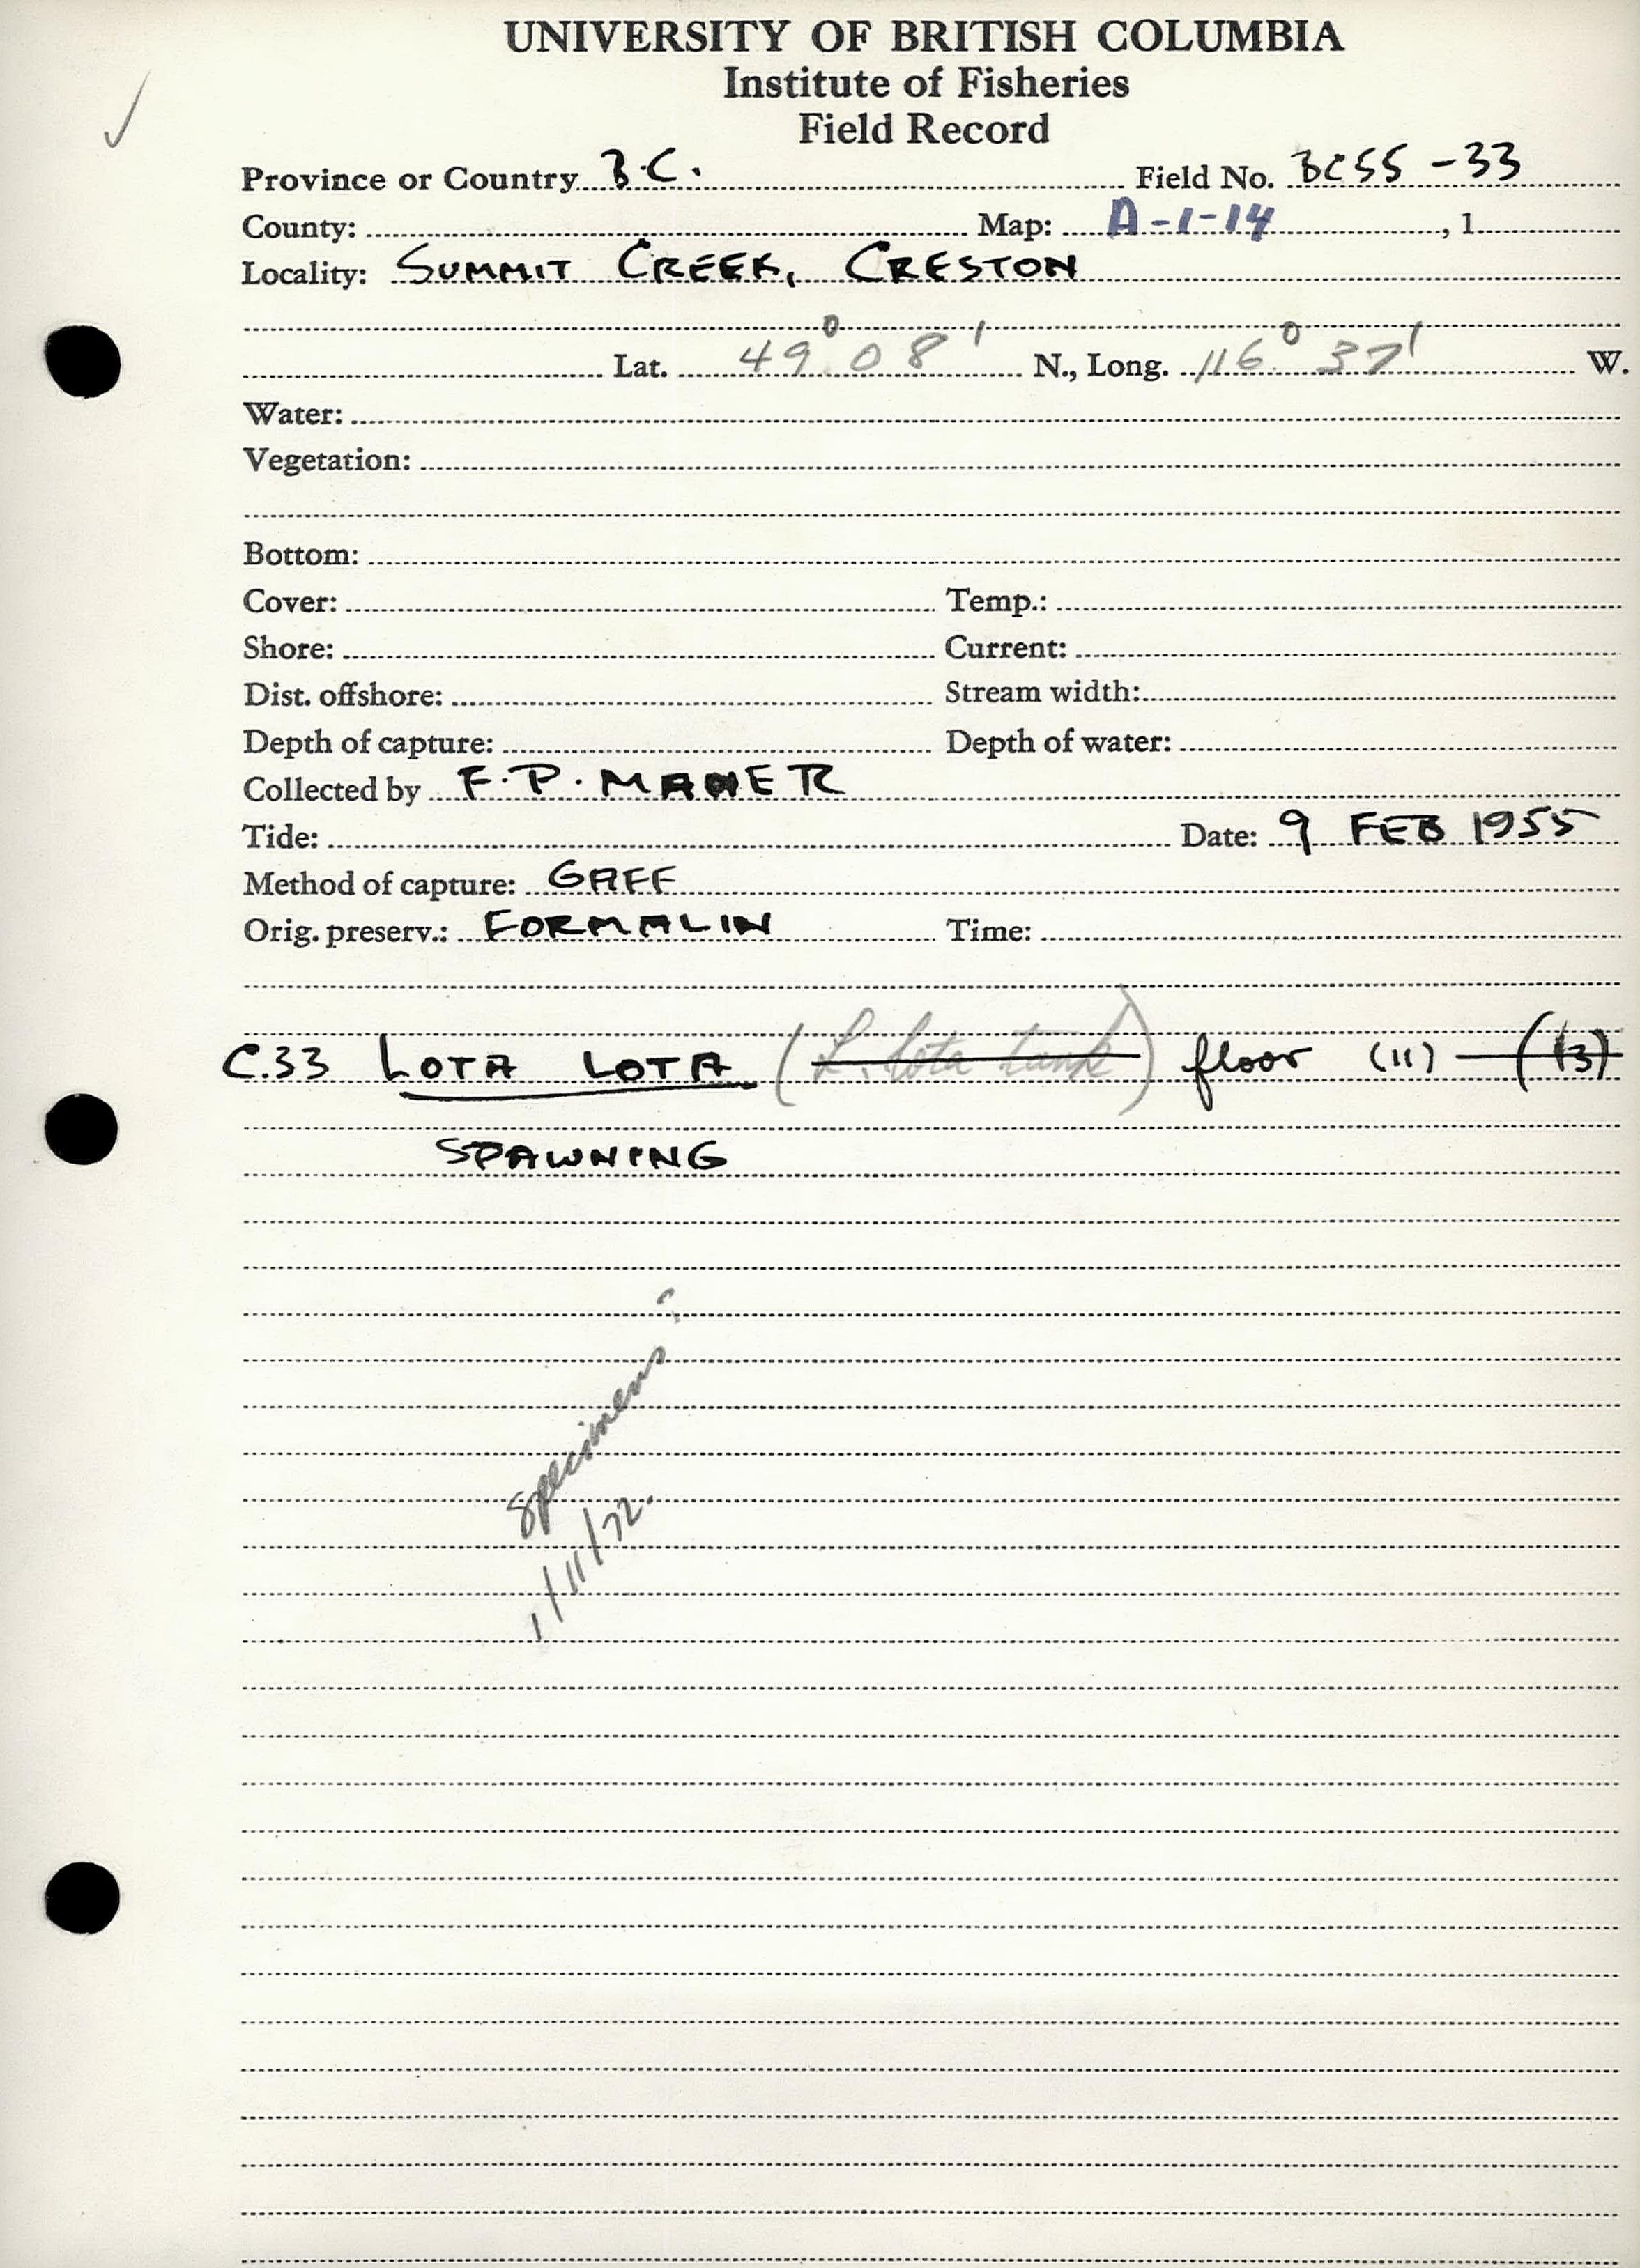 UNIVERSITY OF BRITISH COLUMBIA
Institute of Fisheries
Field Record
Province or Country B.C. Field No. BC55-33
County: Map: A-1-14, 1
Locality: SUMMIT CREEK, CRESTON
Lat. 49° 08' N., Long. 116° 37' W.
Water:
Vegetation:
Bottom:
Cover: Temp.:
Shore: Current:
Dist. offshore: Stream width:
Depth of capture: Depth of water:
Collected by F.P. MAHER
Tide: Date: 9 FEB 1955
Method of capture: GAFF
Orig. preserv.: FORMALIN Time:
C.33 LOTA LOTA (L. lota tank) floor (11) (13)
SPAWNING
specimens
1/11/72.